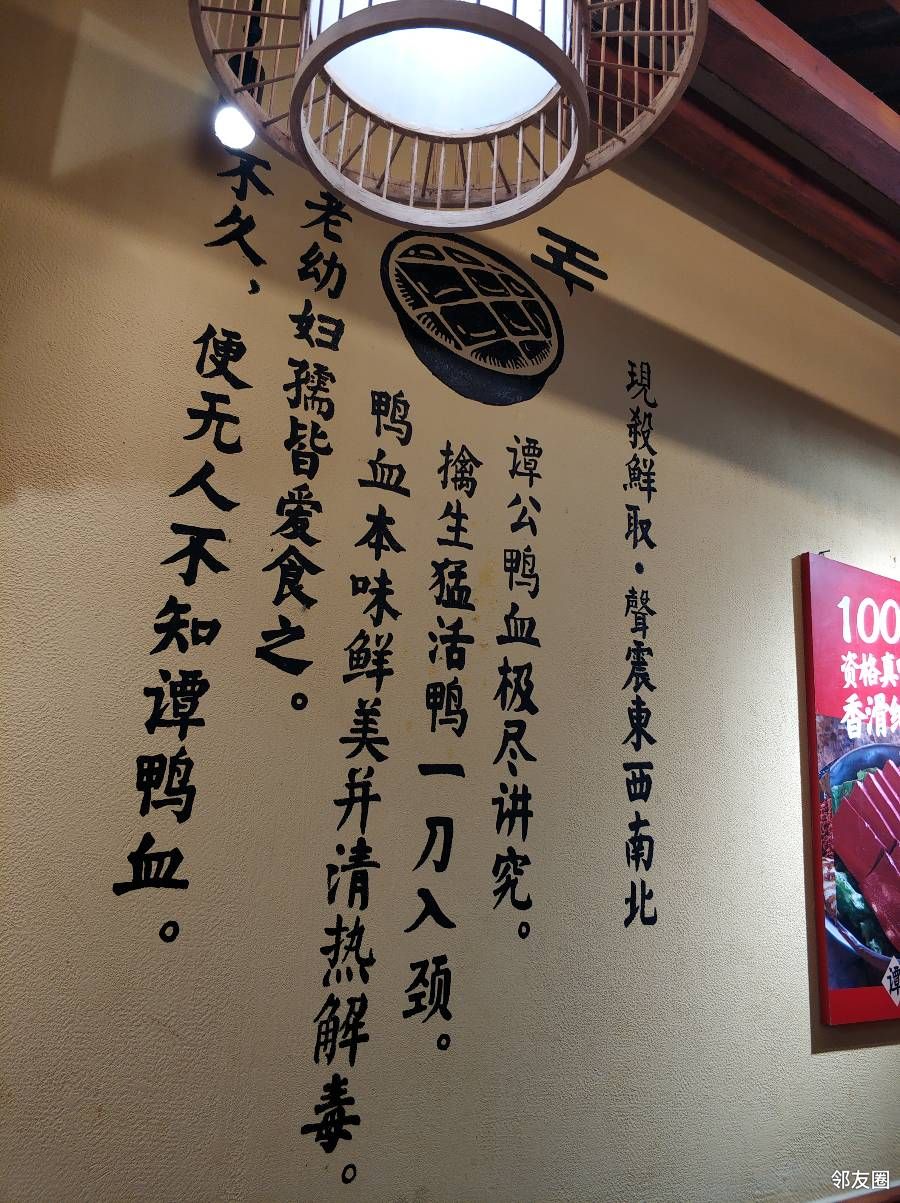 現殺鮮取·聲震東西南北
谭公鸭血极尽讲究。
擒生猛活鸭一刀入颈。
鸭血本味鲜美并清热解毒。
老幼妇孺皆爱食之。
不久，便无人不知谭鸭血。
100
资格真
香滑
谭
邻友圈